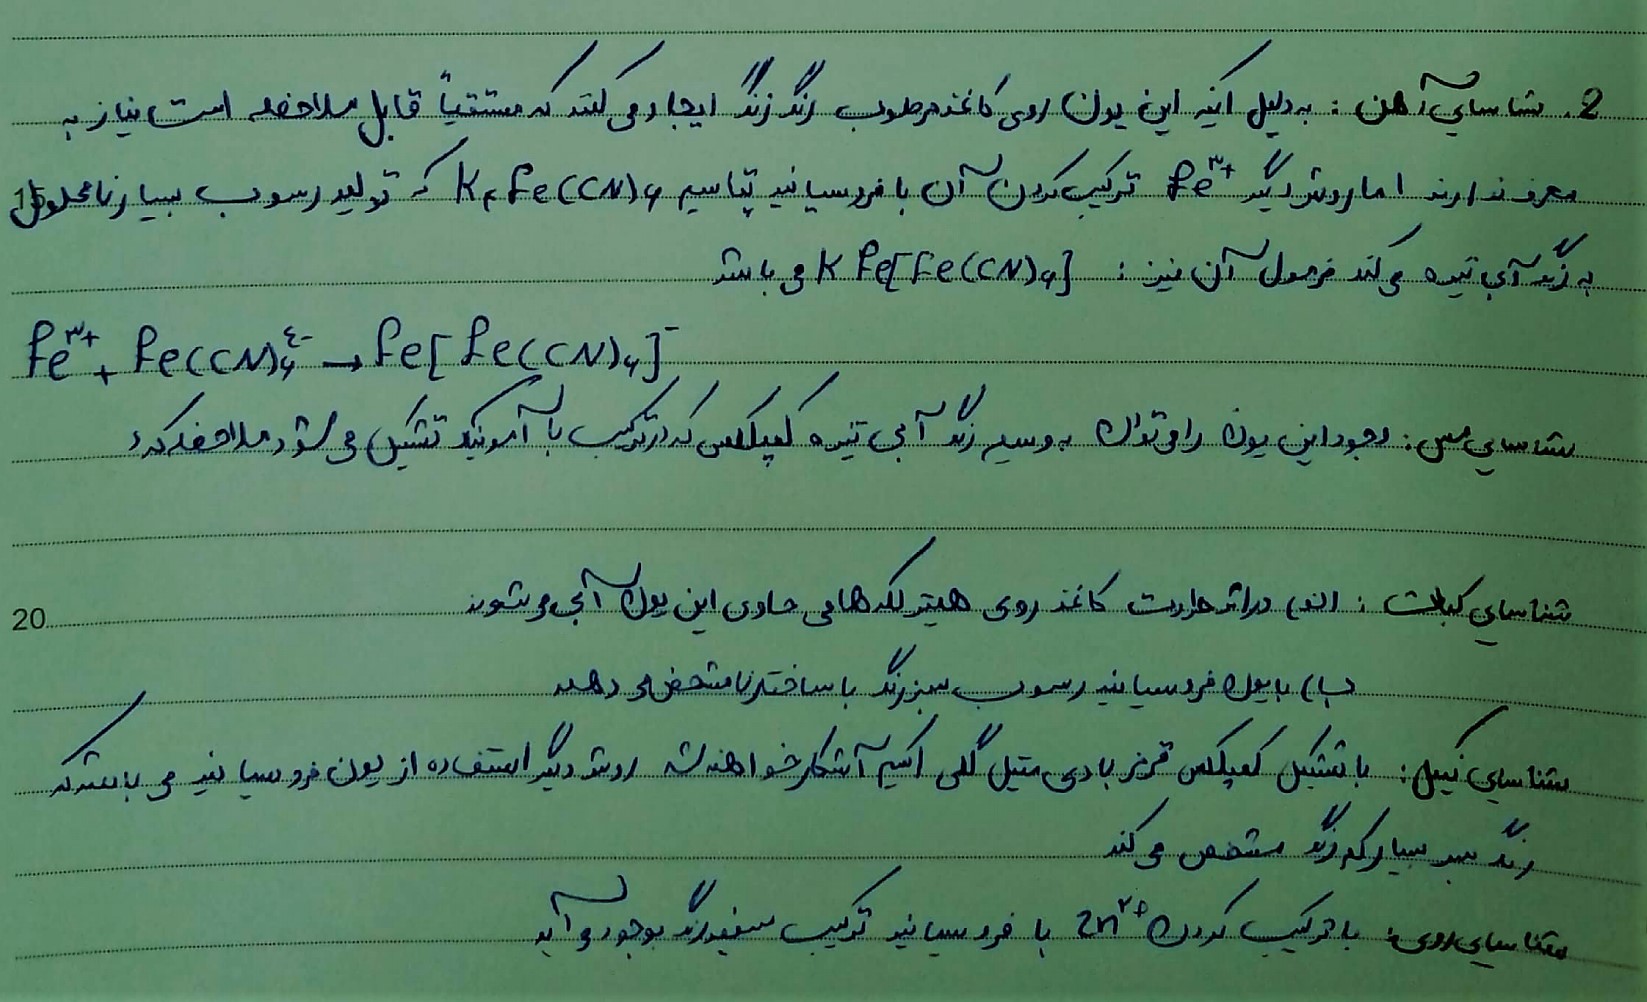 2. شناسایی آهن : به دلیل اینکه این یون روی کاغذ مرطوب رنگ زنگ ایجاد می کنند که مستقیماً قابل ملاحظه است نیاز به
معرف ندارند اما روش دیگر Fe³⁺ ترکیب کردن آن با فروسیانید پتاسیم K₄Fe(CN)₆ که تولید رسوب بسیار نامحلول 15
به رنگ آبی تیره می کند فرمول آن نیز : KFe[Fe(CN)₆] می باشد
Fe³⁺ + Fe(CN)₆⁴⁻ → Fe[Fe(CN)₆]⁻
شناسایی مس : وجود این یون را می توان به وسیله رنگ آبی تیره کمپلکس که در ترکیب با آمونیاک تشکیل می شود ملاحظه کرد
شناسایی کبالت : الف) در اثر حرارت کاغذ روی هیتر لکه هایی حاوی این یون آبی می شوند
20
ب) با یون فروسیانید رسوب سبز رنگ با ساختار نامشخص می دهد
شناسایی نیکل : با تشکیل کمپلکس قرمز با دی متیل گلی اکسیم آشکار خواهند شد روش دیگر استفاده از یون فروسیانید می باشد که
رنگ سبز بسیار کم رنگ مشخص می کند
شناسایی روی : با ترکیب کردن Zn²⁺ با فروسیانید ترکیب سفید رنگ بوجود می آید